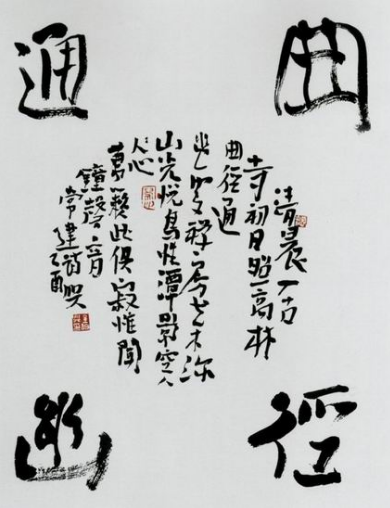 曲
径
通
幽
清晨入古
寺初日照高林
曲径通
幽處禅房花木深
山光悦鳥性潭影空人
心
萬籟此俱寂惟聞
鐘磬音
常建詩
乙酉